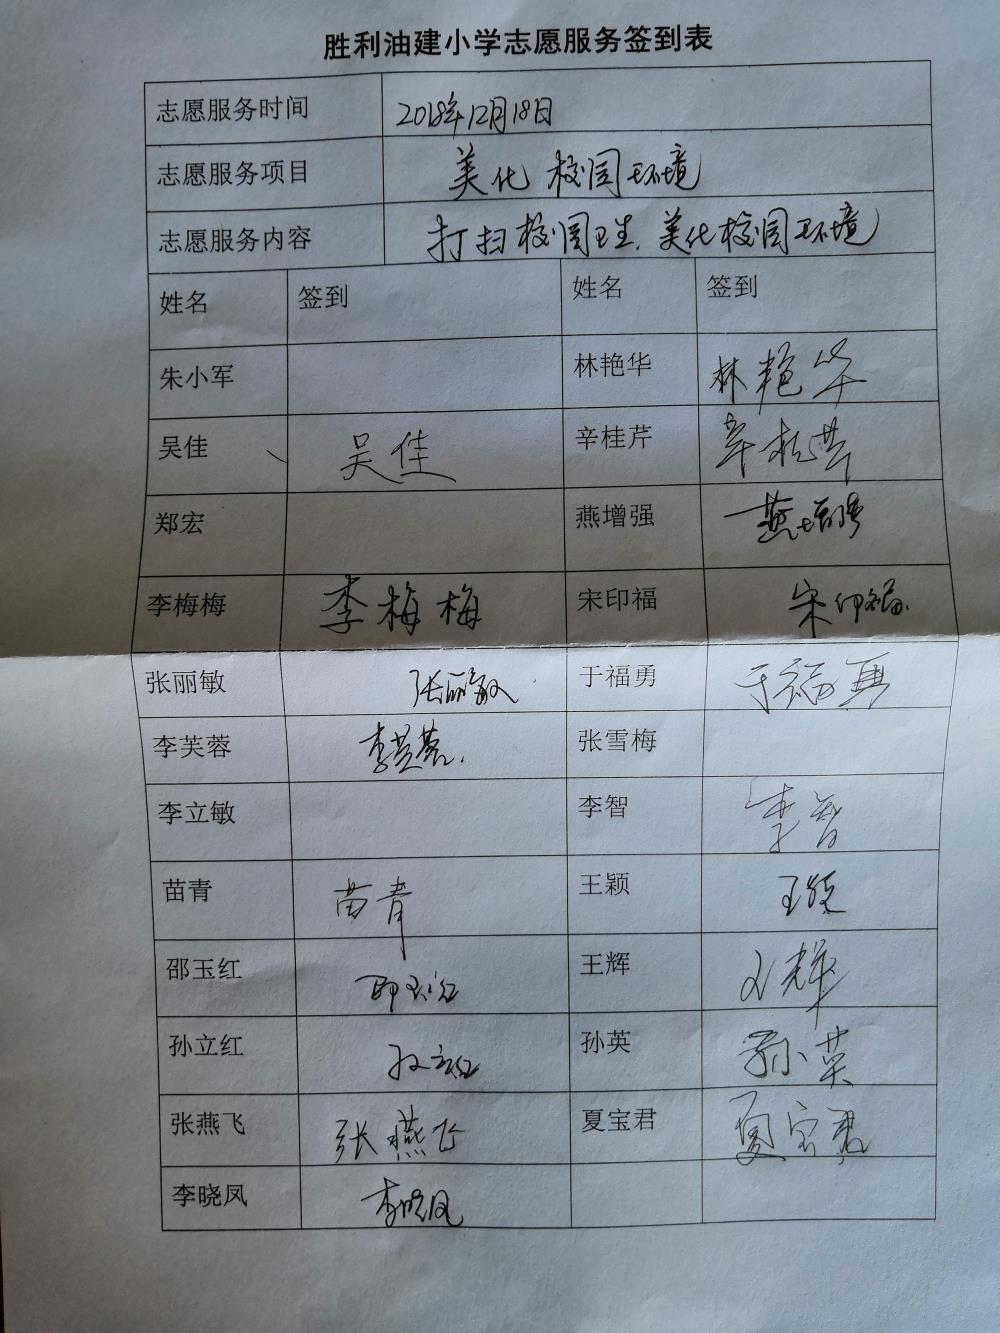 胜利油建小学志愿服务签到表
志愿服务时间 2018年12月18日
志愿服务项目 美化校园环境
志愿服务内容 打扫校园卫生.美化校园环境
姓名 签到 姓名 签到
朱小军 林艳华 林艳华
吴佳 吴佳 辛桂芹 辛桂芹
郑宏 燕增强 燕增强
李梅梅 李梅梅 宋印福 宋印福
张丽敏 张丽敏 于福勇 于福勇
李芙蓉 李芙蓉 张雪梅
李立敏 李智 李智
苗青 苗青 王颖 王颖
邵玉红 邵玉红 王辉 王辉
孙立红 孙立红 孙英 孙英
张燕飞 张燕飞 夏宝君 夏宝君
李晓凤 李晓凤